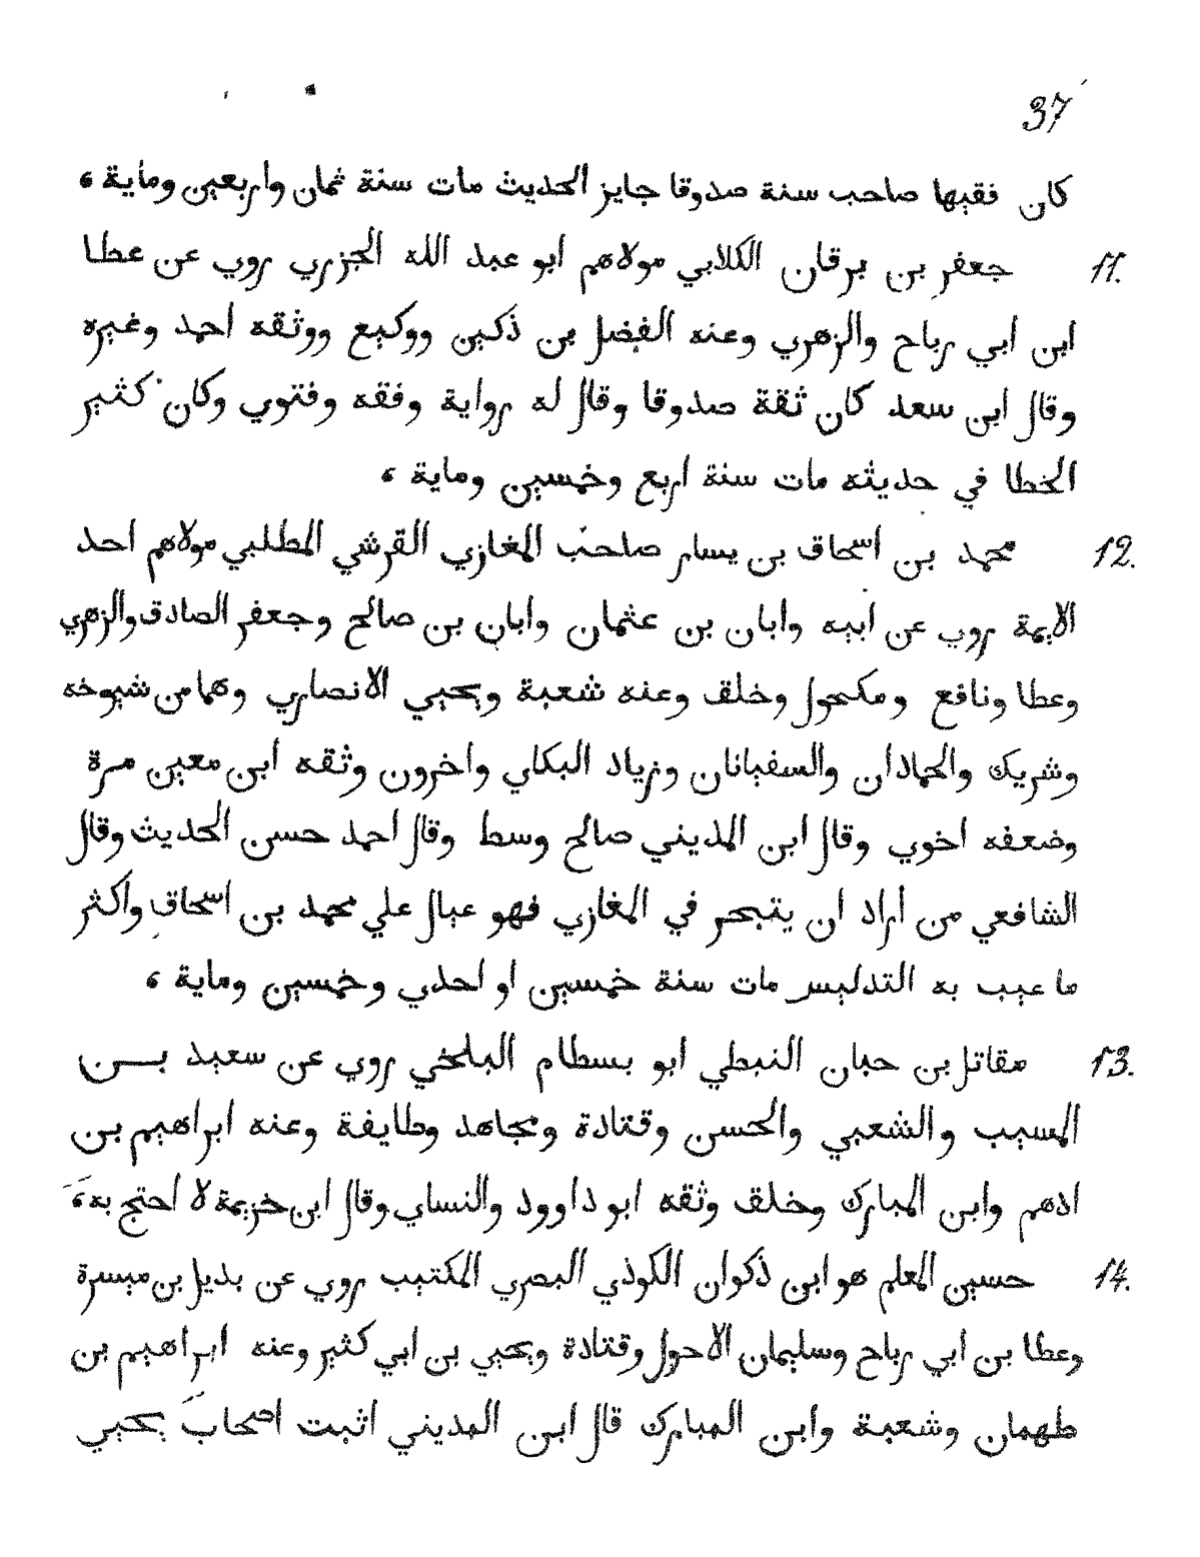 37
كان فقيها صاحب سنة صدوقا جايز الحديث مات سنة ثمان واربعين وماية ،
11. جعفر بن برقان الكلابي مولاهم ابو عبد الله الجزري روي عن عطا
ابن أبي رباح والزهري وعنه الفضل بن ذكين ووكيع ووثقه أحمد وغيره
وقال ابن سعد كان ثقة صدوقا وقال له رواية وفقه وفتوي وكان كثير
الخطا في حديثه مات سنة اربع وخمسين وماية ،
12. محمد بن اسحاق بن يسار صاحب المغازي القرشي المطلبي مولاهم احد
الايمة روي عن ابيه وابان بن عثمان وابان بن صالح وجعفر الصادق والزهري
وعطا ونافع ومكحول وخلق وعنه شعبة ويحيي الانصاري وهما من شيوخه
وشريك والحمادان والسفيانان وزياد البكاي واخرون وثقه ابن معين مرة
وضعفه اخوي وقال ابن المديني صالح وسط وقال احمد حسن الحديث وقال
الشافعي من أراد ان يتبحر في المغازي فهو عيال علي محمد بن اسحاق وأكثر
ما عيب به التدليس مات سنة خمسين او احدي وخمسين وماية ،
13. مقاتل بن حيان النبطي ابو بسطام البلخي روي عن سعيد بن
المسيب والشعبي والحسن وقتادة ومجاهد وطايفة وعنه ابراهيم بن
ادهم وابن المبارك وخلق وثقه ابو داوود والنساي وقال ابن خزيمة لا احتج به ،
14. حسين المعلم هو ابن ذكوان الكوذي البصري المكتيب روي عن بديل بن ميسرة
وعطا بن ابي رباح وسليمان الاحول وقتادة ويحيي بن ابي كثير وعنه ابراهيم بن
طهمان وشعبة وابن المبارك قال ابن المديني اثبت اصحاب يحيي